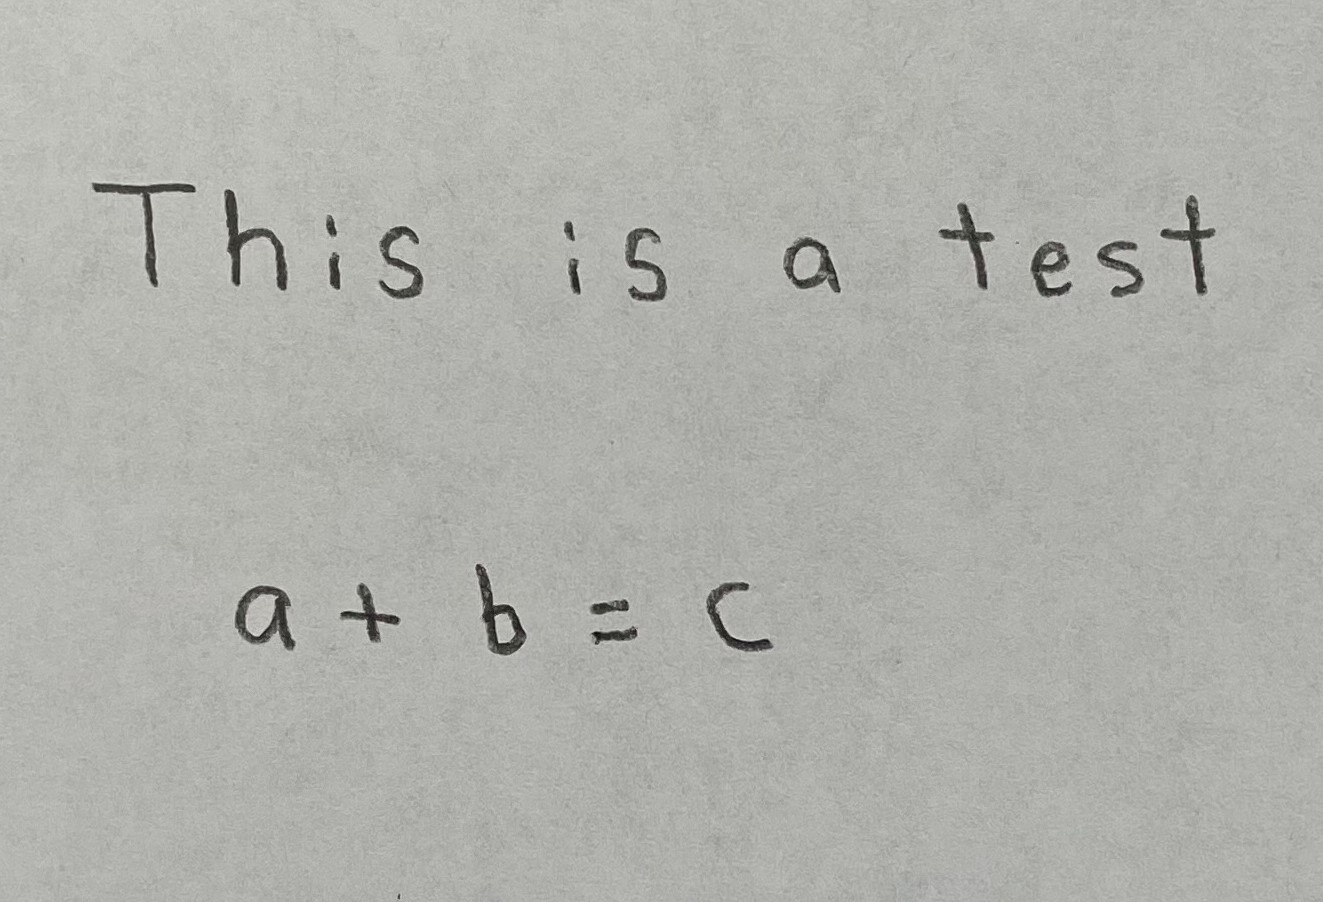 This is a test
a + b = c